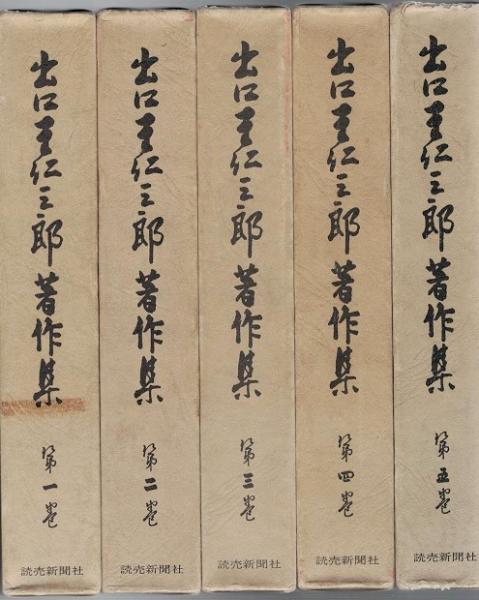 出口王仁三郎著作集
第一巻
読売新聞社
出口王仁三郎著作集
第二巻
読売新聞社
出口王仁三郎著作集
第三巻
読売新聞社
出口王仁三郎著作集
第四巻
読売新聞社
出口王仁三郎著作集
第五巻
読売新聞社